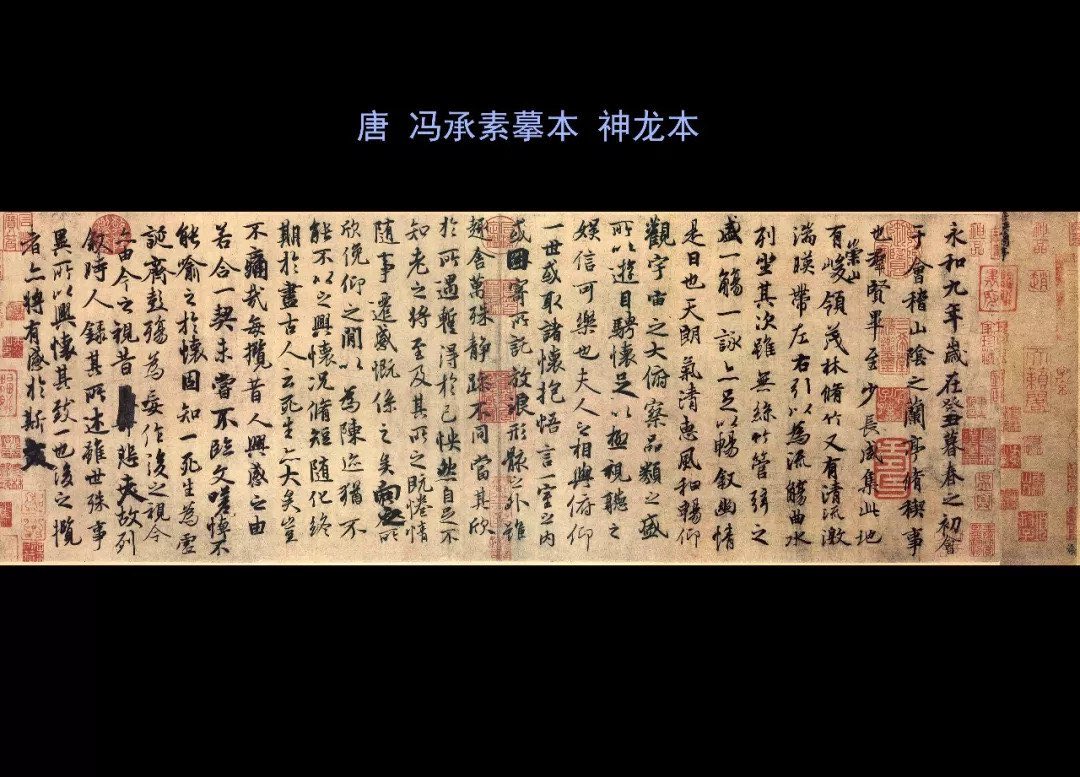 唐 冯承素摹本 神龙本
永和九年歲在癸丑暮春之初會
于會稽山陰之蘭亭脩禊事
也羣賢畢至少長咸集此地
有崇山峻領茂林脩竹又有清流激
湍暎帶左右引以為流觴曲水
列坐其次雖無絲竹管弦之
盛一觴一詠亦足以暢敘幽情
是日也天朗氣清惠風和暢仰
觀宇宙之大俯察品類之盛
所以遊目騁懷足以極視聽之
娛信可樂也夫人之相與俯仰
一世或取諸懷抱悟言一室之內
或因寄所託放浪形骸之外雖
趣舍萬殊靜躁不同當其欣
於所遇蹔得於己怏然自足不
知老之將至及其所之既惓情
隨事遷感慨係之矣向之所
欣俛仰之閒以為陳迹猶不
能不以之興懷況脩短隨化終
期於盡古人云死生亦大矣豈
不痛哉每攬昔人興感之由
若合一契未嘗不臨文嗟悼不
能喻之於懷固知一死生為虛
誕齊彭殤為妄作後之視今
亦由今之視昔悲夫故列
敘時人錄其所述雖世殊事
異所以興懷其致一也後之攬
者亦將有感於斯文